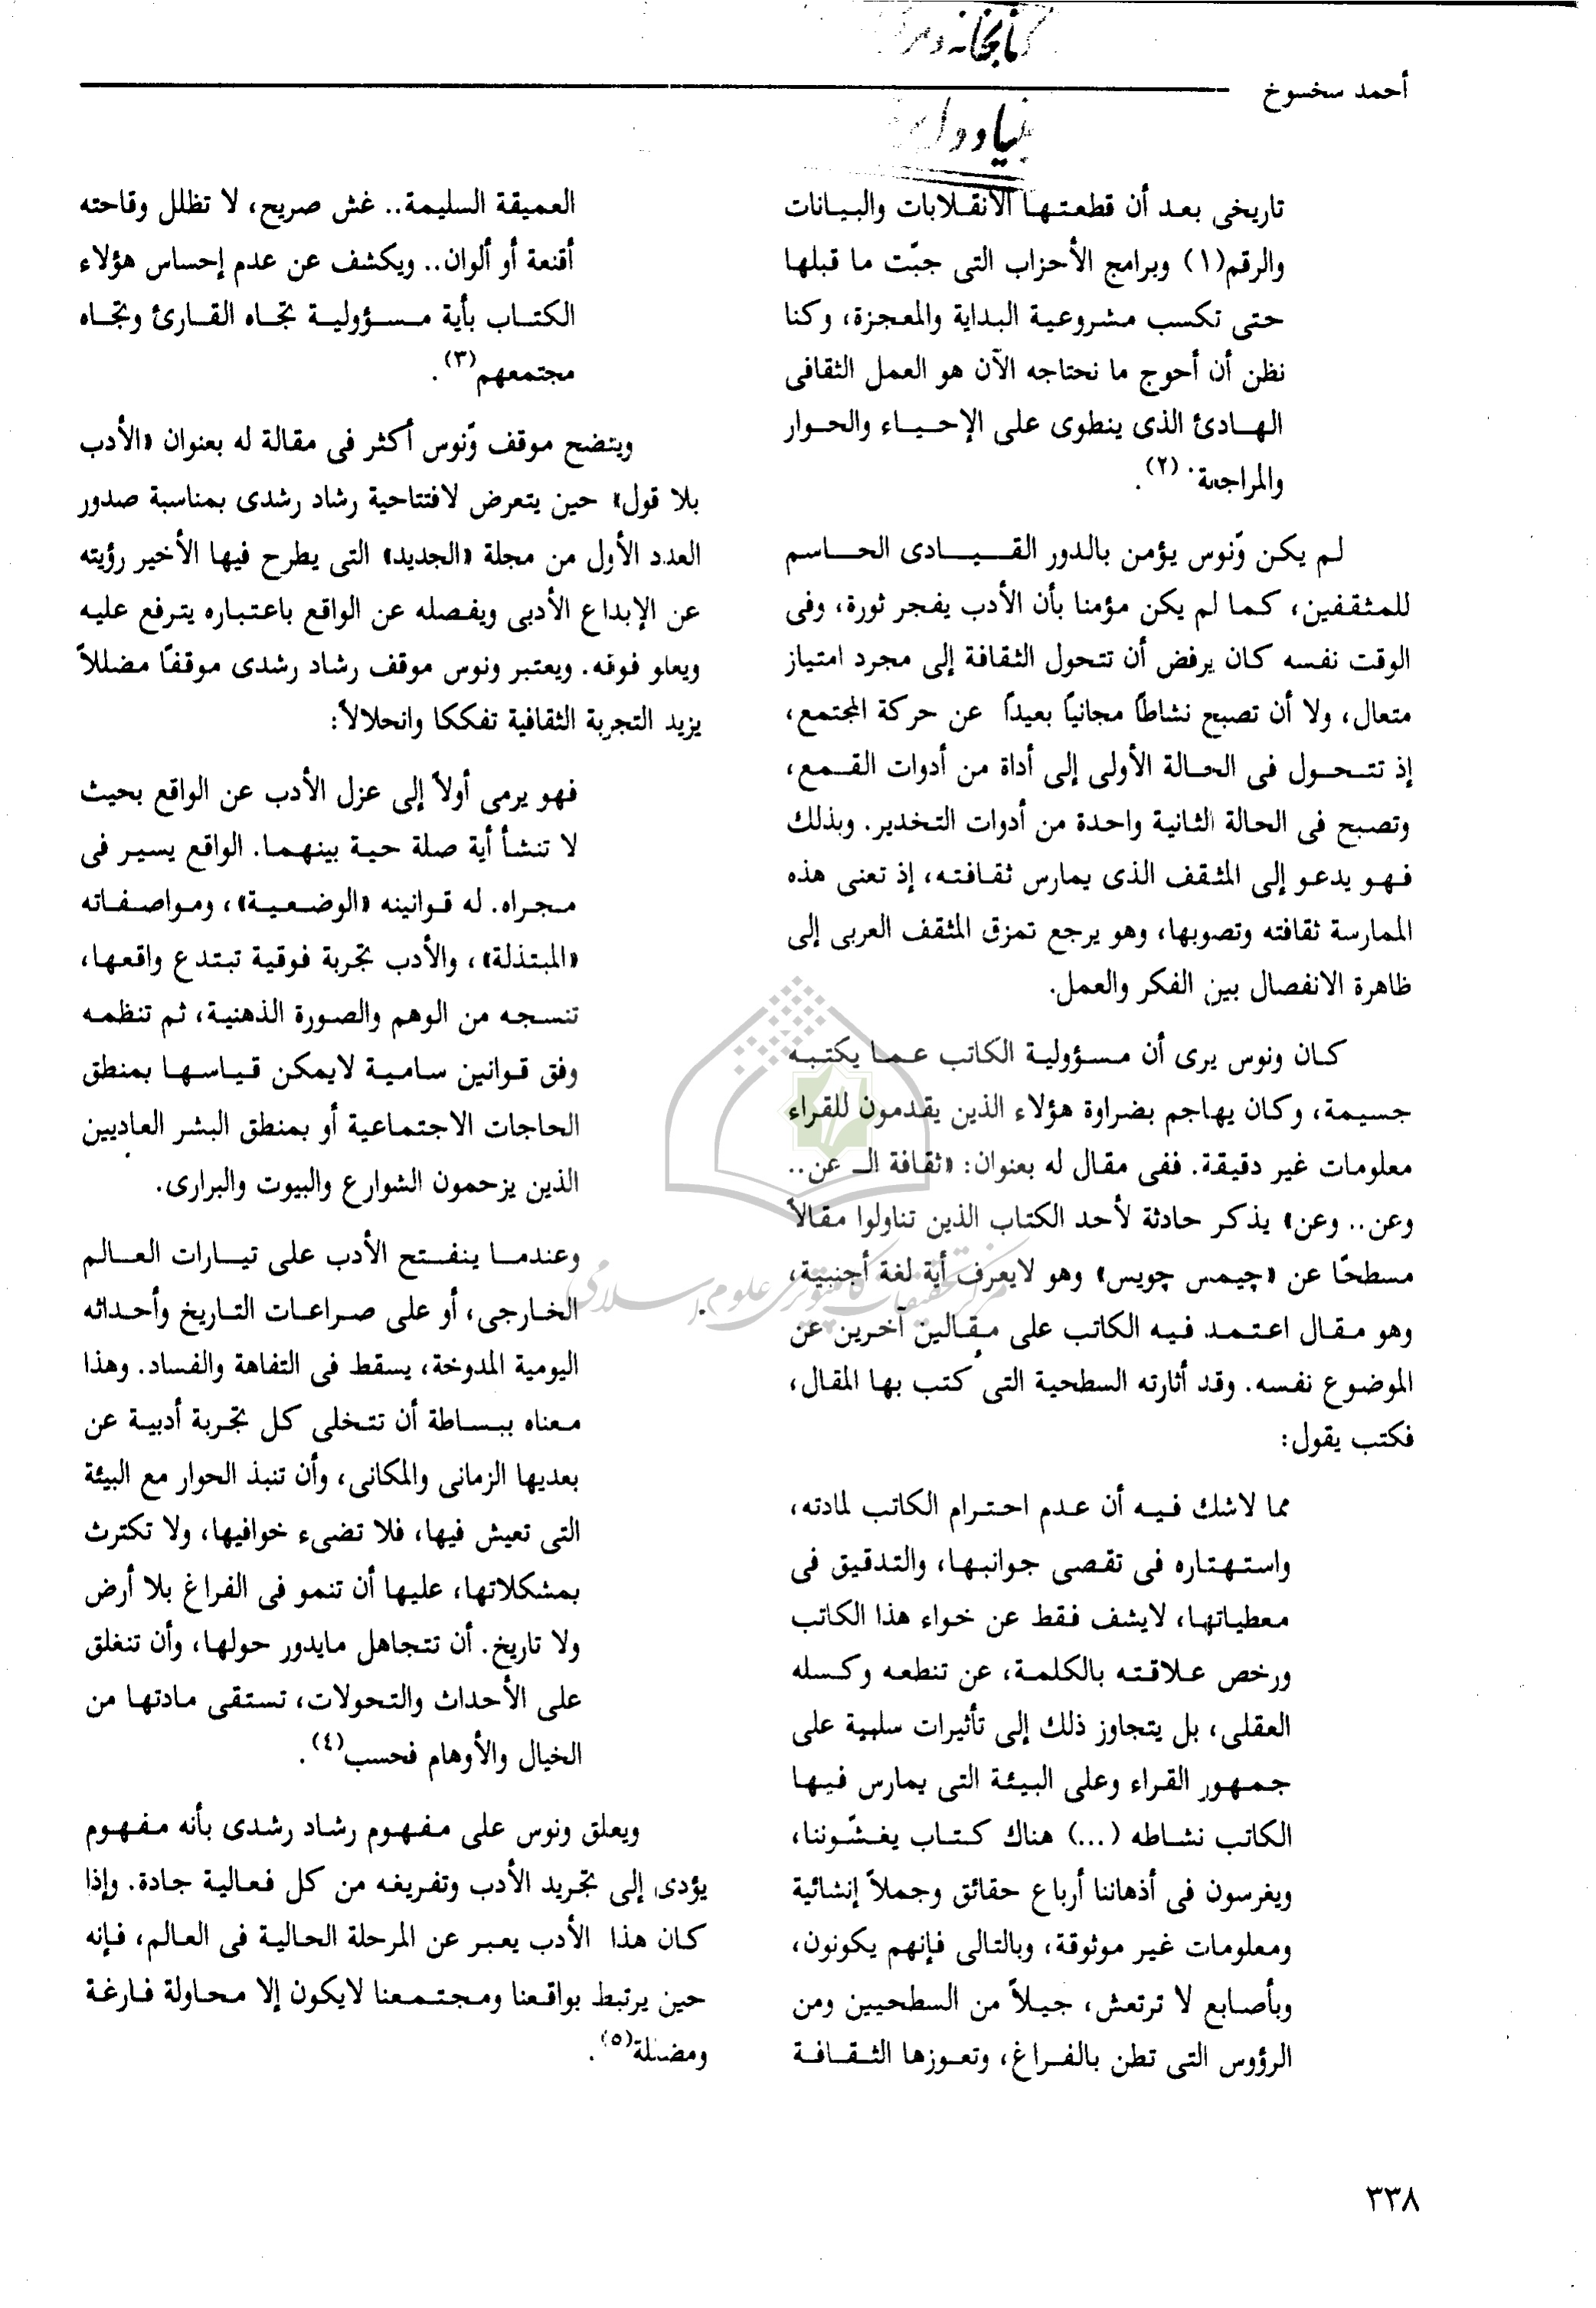 أحمد سخسوخ
تاريخى بعد أن قطعتها الانقلابات والبيانات
والرقم(١) وبرامج الأحزاب التى جبّت ما قبلها
حتى تكسب مشروعية البداية والمعجزة، وكنا
نظن أن أحوج ما نحتاجه الآن هو العمل الثقافى
الهادئ الذى ينطوى على الإحياء والحوار
والمراجعة. (٢).
لم يكن ونّوس يؤمن بالدور القيادى الحاسم
للمثقفين، كما لم يكن مؤمنا بأن الأدب يفجر ثورة، وفى
الوقت نفسه كان يرفض أن تتحول الثقافة إلى مجرد امتياز
متعال، ولا أن تصبح نشاطاً مجانياً بعيداً عن حركة المجتمع،
إذ تتحول فى الحالة الأولى إلى أداة من أدوات القمع،
وتصبح فى الحالة الثانية واحدة من أدوات التخدير. وبذلك
فهو يدعو إلى المثقف الذى يمارس ثقافته، إذ تعنى هذه
الممارسة ثقافته وتصوبها، وهو يرجع تمزق المثقف العربى إلى
ظاهرة الانفصال بين الفكر والعمل.
كان ونوس يرى أن مسؤولية الكاتب عما يكتبه
جسيمة، وكان يهاجم بضراوة هؤلاء الذين يقدمون للقراء
معلومات غير دقيقة. ففى مقال له بعنوان: «ثقافة الـ عن..
وعن.. وعن» يذكر حادثة لأحد الكتاب الذين تناولوا مقالاً
مسطحًا عن «چيمس چويس» وهو لايعرف أية لغة أجنبية،
وهو مقال اعتمد فيه الكاتب على مقالين آخرين عن
الموضوع نفسه. وقد أثارته السطحية التى كتب بها المقال،
فكتب يقول:
مما لاشك فيه أن عدم احترام الكاتب لمادته،
واستهتاره فى تقصى جوانبها، والتدقيق فى
معطياتها، لايشف فقط عن خواء هذا الكاتب
ورخص علاقته بالكلمة، عن تنطعه وكسله
العقلى، بل يتجاوز ذلك إلى تأثيرات سلبية على
جمهور القراء وعلى البيئة التى يمارس فيها
الكاتب نشاطه (...) هناك كتاب يغشّوننا،
ويغرسون فى أذهاننا أرباع حقائق وجملاً إنشائية
ومعلومات غير موثوقة، وبالتالى فإنهم يكونون،
وبأصابع لا ترتعش، جيلاً من السطحيين ومن
الرؤوس التى تطن بالفراغ، وتعوزها الثقافة
العميقة السليمة.. غش صريح، لا تظلل وقاحته
أقنعة أو ألوان.. ويكشف عن عدم إحساس هؤلاء
الكتاب بأية مسؤولية تجاه القارئ وتجاه
مجتمعهم(٣).
ويتضح موقف ونّوس أكثر فى مقالة له بعنوان «الأدب
بلا قول» حين يتعرض لافتتاحية رشاد رشدى بمناسبة صدور
العدد الأول من مجلة «الجديد» التى يطرح فيها الأخير رؤيته
عن الإبداع الأدبى ويفصله عن الواقع باعتباره يترفع عليه
ويعلو فوقه. ويعتبر ونوس موقف رشاد رشدى موقفًا مضللاً
يزيد التجربة الثقافية تفككا وانحلالاً:
فهو يرمى أولاً إلى عزل الأدب عن الواقع بحيث
لا تنشأ أية صلة حية بينهما. الواقع يسير فى
مجراه. له قوانينه «الوضعية»، ومواصفاته
«المبتذلة»، والأدب تجربة فوقية تبتدع واقعها،
تنسجه من الوهم والصورة الذهنية، ثم تنظمه
وفق قوانين سامية لايمكن قياسها بمنطق
الحاجات الاجتماعية أو بمنطق البشر العاديين
الذين يزحمون الشوارع والبيوت والبرارى.
وعندما ينفتح الأدب على تيارات العالم
الخارجى، أو على صراعات التاريخ وأحداثه
اليومية المدوخة، يسقط فى التفاهة والفساد. وهذا
معناه ببساطة أن تتخلى كل تجربة أدبية عن
بعديها الزمانى والمكانى، وأن تنبذ الحوار مع البيئة
التى تعيش فيها، فلا تضىء خوافيها، ولا تكترث
بمشكلاتها، عليها أن تنمو فى الفراغ بلا أرض
ولا تاريخ. أن تتجاهل مايدور حولها، وأن تنغلق
على الأحداث والتحولات، تستقى مادتها من
الخيال والأوهام فحسب(٤).
ويعلق ونوس على مفهوم رشاد رشدى بأنه مفهوم
يؤدى إلى تجريد الأدب وتفريغه من كل فعالية جادة. وإذا
كان هذا الأدب يعبر عن المرحلة الحالية فى العالم، فإنه
حين يرتبط بواقعنا ومجتمعنا لايكون إلا محاولة فارغة
ومضللة(٥).
مركز تحقيقات كامپيوتری علوم اسلامی
٣٣٨